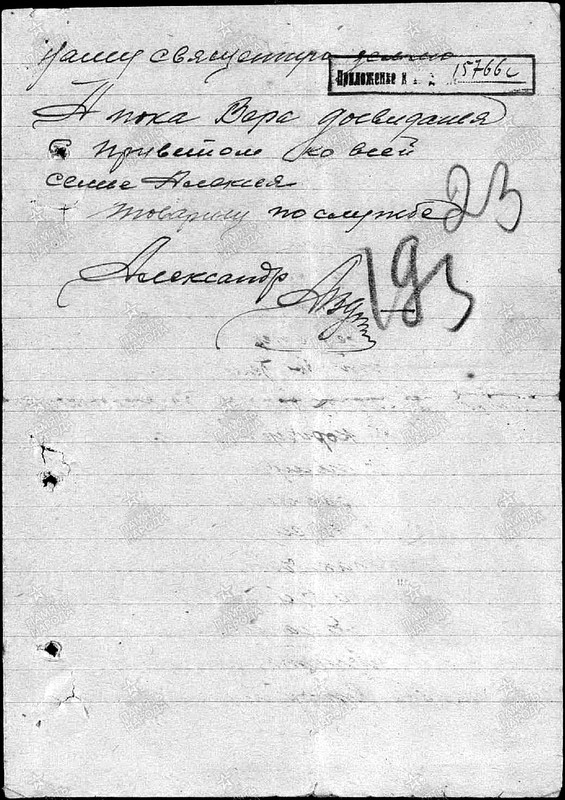 нашу священную землю
Приложение к 15766с
И пока Вера досвидания
С приветом ко всей
семье Алексея
товарищ по службе
23
Александр
193